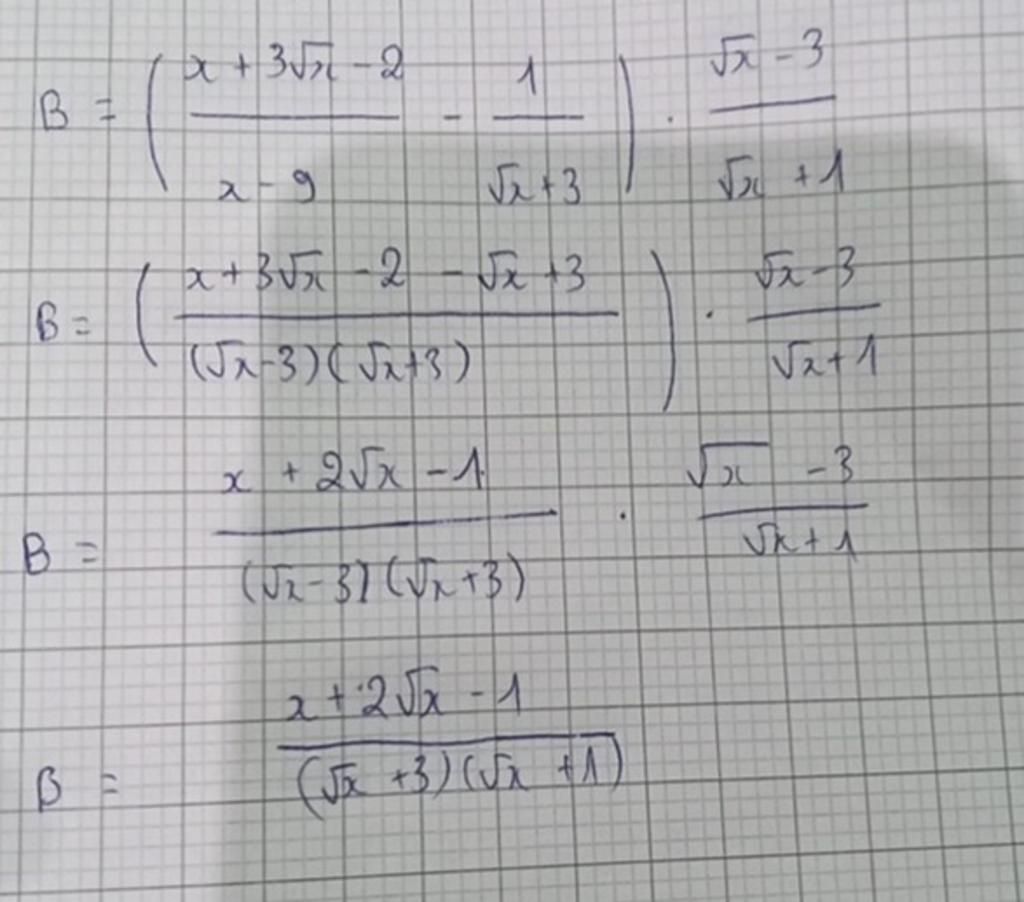 B = ( (x + 3√x - 2)/(x - 9) - 1/(√x + 3) ) . (√x - 3)/(√x + 1)
B = ( (x + 3√x - 2 - √x + 3)/((√x - 3)(√x + 3)) ) . (√x - 3)/(√x + 1)
B = (x + 2√x - 1)/((√x - 3)(√x + 3)) . (√x - 3)/(√x + 1)
B = (x + 2√x - 1)/((√x + 3)(√x + 1))